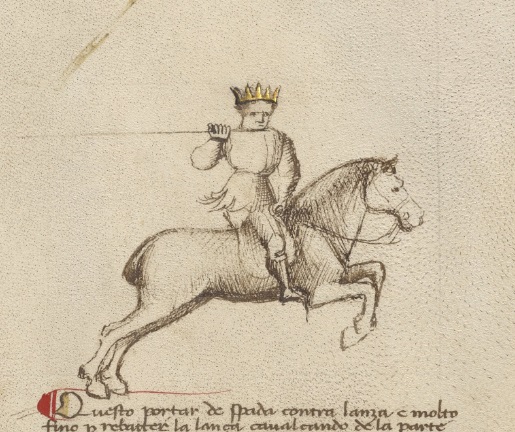 Questo portar de spada contra lanza e molto
fino p rebatter la lanza cavalcando de la parte